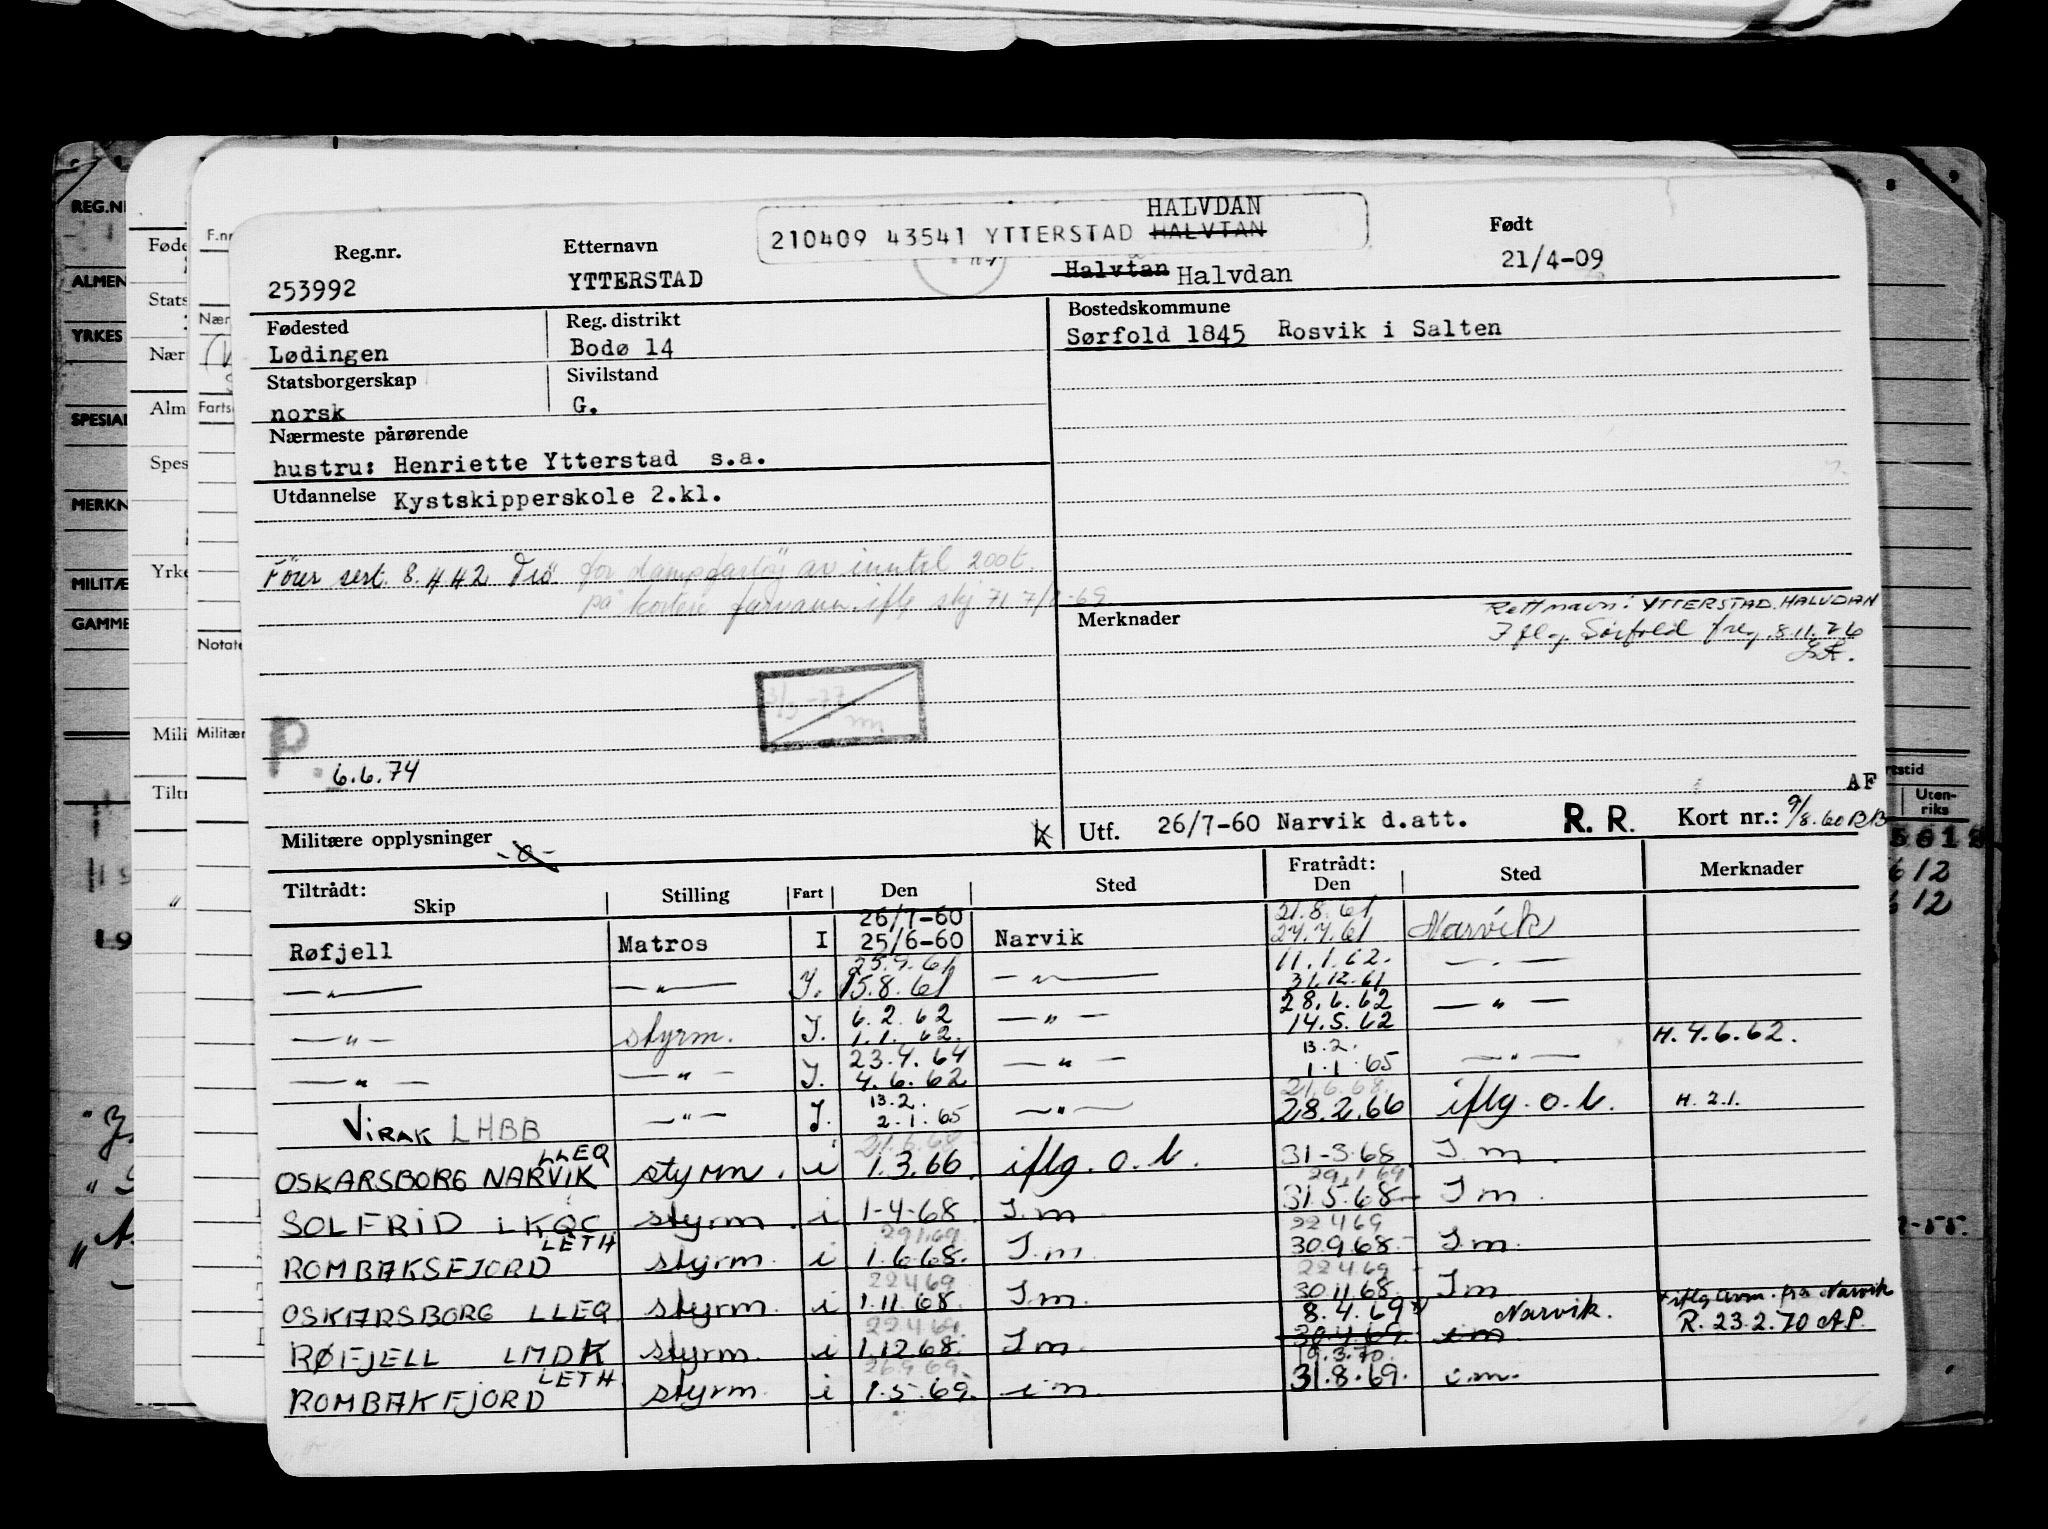 HALVDAN
210409 43541 YTTERSTAD HALVTAN
Reg.nr. Etternavn Født
253992 YTTERSTAD Halvtan Halvdan 21/4-09
Fødested Reg. distrikt Bostedskommune
Lødingen Bodø 14 Sørfold 1845 Rosvik i Salten
Statsborgerskap Sivilstand
norsk G.
Nærmeste pårørende
hustru: Henriette Ytterstad s.a.
Utdannelse Kystskipperskole 2.kl.
Fører sert. 8.442 for dampfartøy av inntil 200t.
på kortere farvann iflg
Merknader Rett navn: YTTERSTAD. HALVDAN
Iflg. Sørfold freg. 8.11.76
3/3-77
P. 6.6.74
AF
Militære opplysninger -o- k Utf. 26/7-60 Narvik d.att. R. R. Kort nr.: 9/8.60
Tiltrådt: Fratrådt:
Skip Stilling Fart Den Sted Den Sted Merknader
26/7-60 21.8.61
Røfjell Matros I 25/6-60 Narvik 27.7.61 Narvik
25.9.61 11.1.62.
—"— —"— I. 15.8.61 —"— 31.12.61 —"—
6.2.62 28.6.62
—"— styrm. I. 1.1.62. —"— 14.5.62 —"— H. 4.6.62.
23.4.64 13.2.
—"— —"— I. 4.6.62 —"— 1.1.65 —"—
13.2. 21.6.68.
VIRAK LHBB —"— I. 2.1.65 —"— 28.2.66 iflg. o.b. H. 2.1.
LLEQ 21.6.68
OSKARSBORG NARVIK styrm. i 1.3.66 iflg. o.b. 31-3-68 I.m.
29.1.69
SOLFRID LKQC styrm. i 1-4-68 I.m 31.5.68 I m.
LETH 29.1.69 22469
ROMBAKSFJORD styrm. i 1.6.68. I.m. 30.9.68. I.m.
22469 22469
OSKARSBORG LLEQ styrm. i 1.11.68. I.m. 30.11.68. I m
22.4.69 8.4.69 Narvik. iflg avm. fra Narvik
RØFJELL LMDK styrm. i 1.12.68. I.m 30.4.69. i m R. 23.2.70 AP.
LETH 26.9.69. 19.3.70.
ROMBAKFJORD styrm. i 1.5.69. i m. 31.8.69. i.m.
REG.N
ALMEN
YRKES
SPESIAL
MERKN
MILITÆ
GAMME
Føde
Stats
Nær
Alm
Spes
Yrke
Mili
Tiltr
F.nr
Nær
Farts
Notate
Militær
rtstid
Uten-
riks
612
612